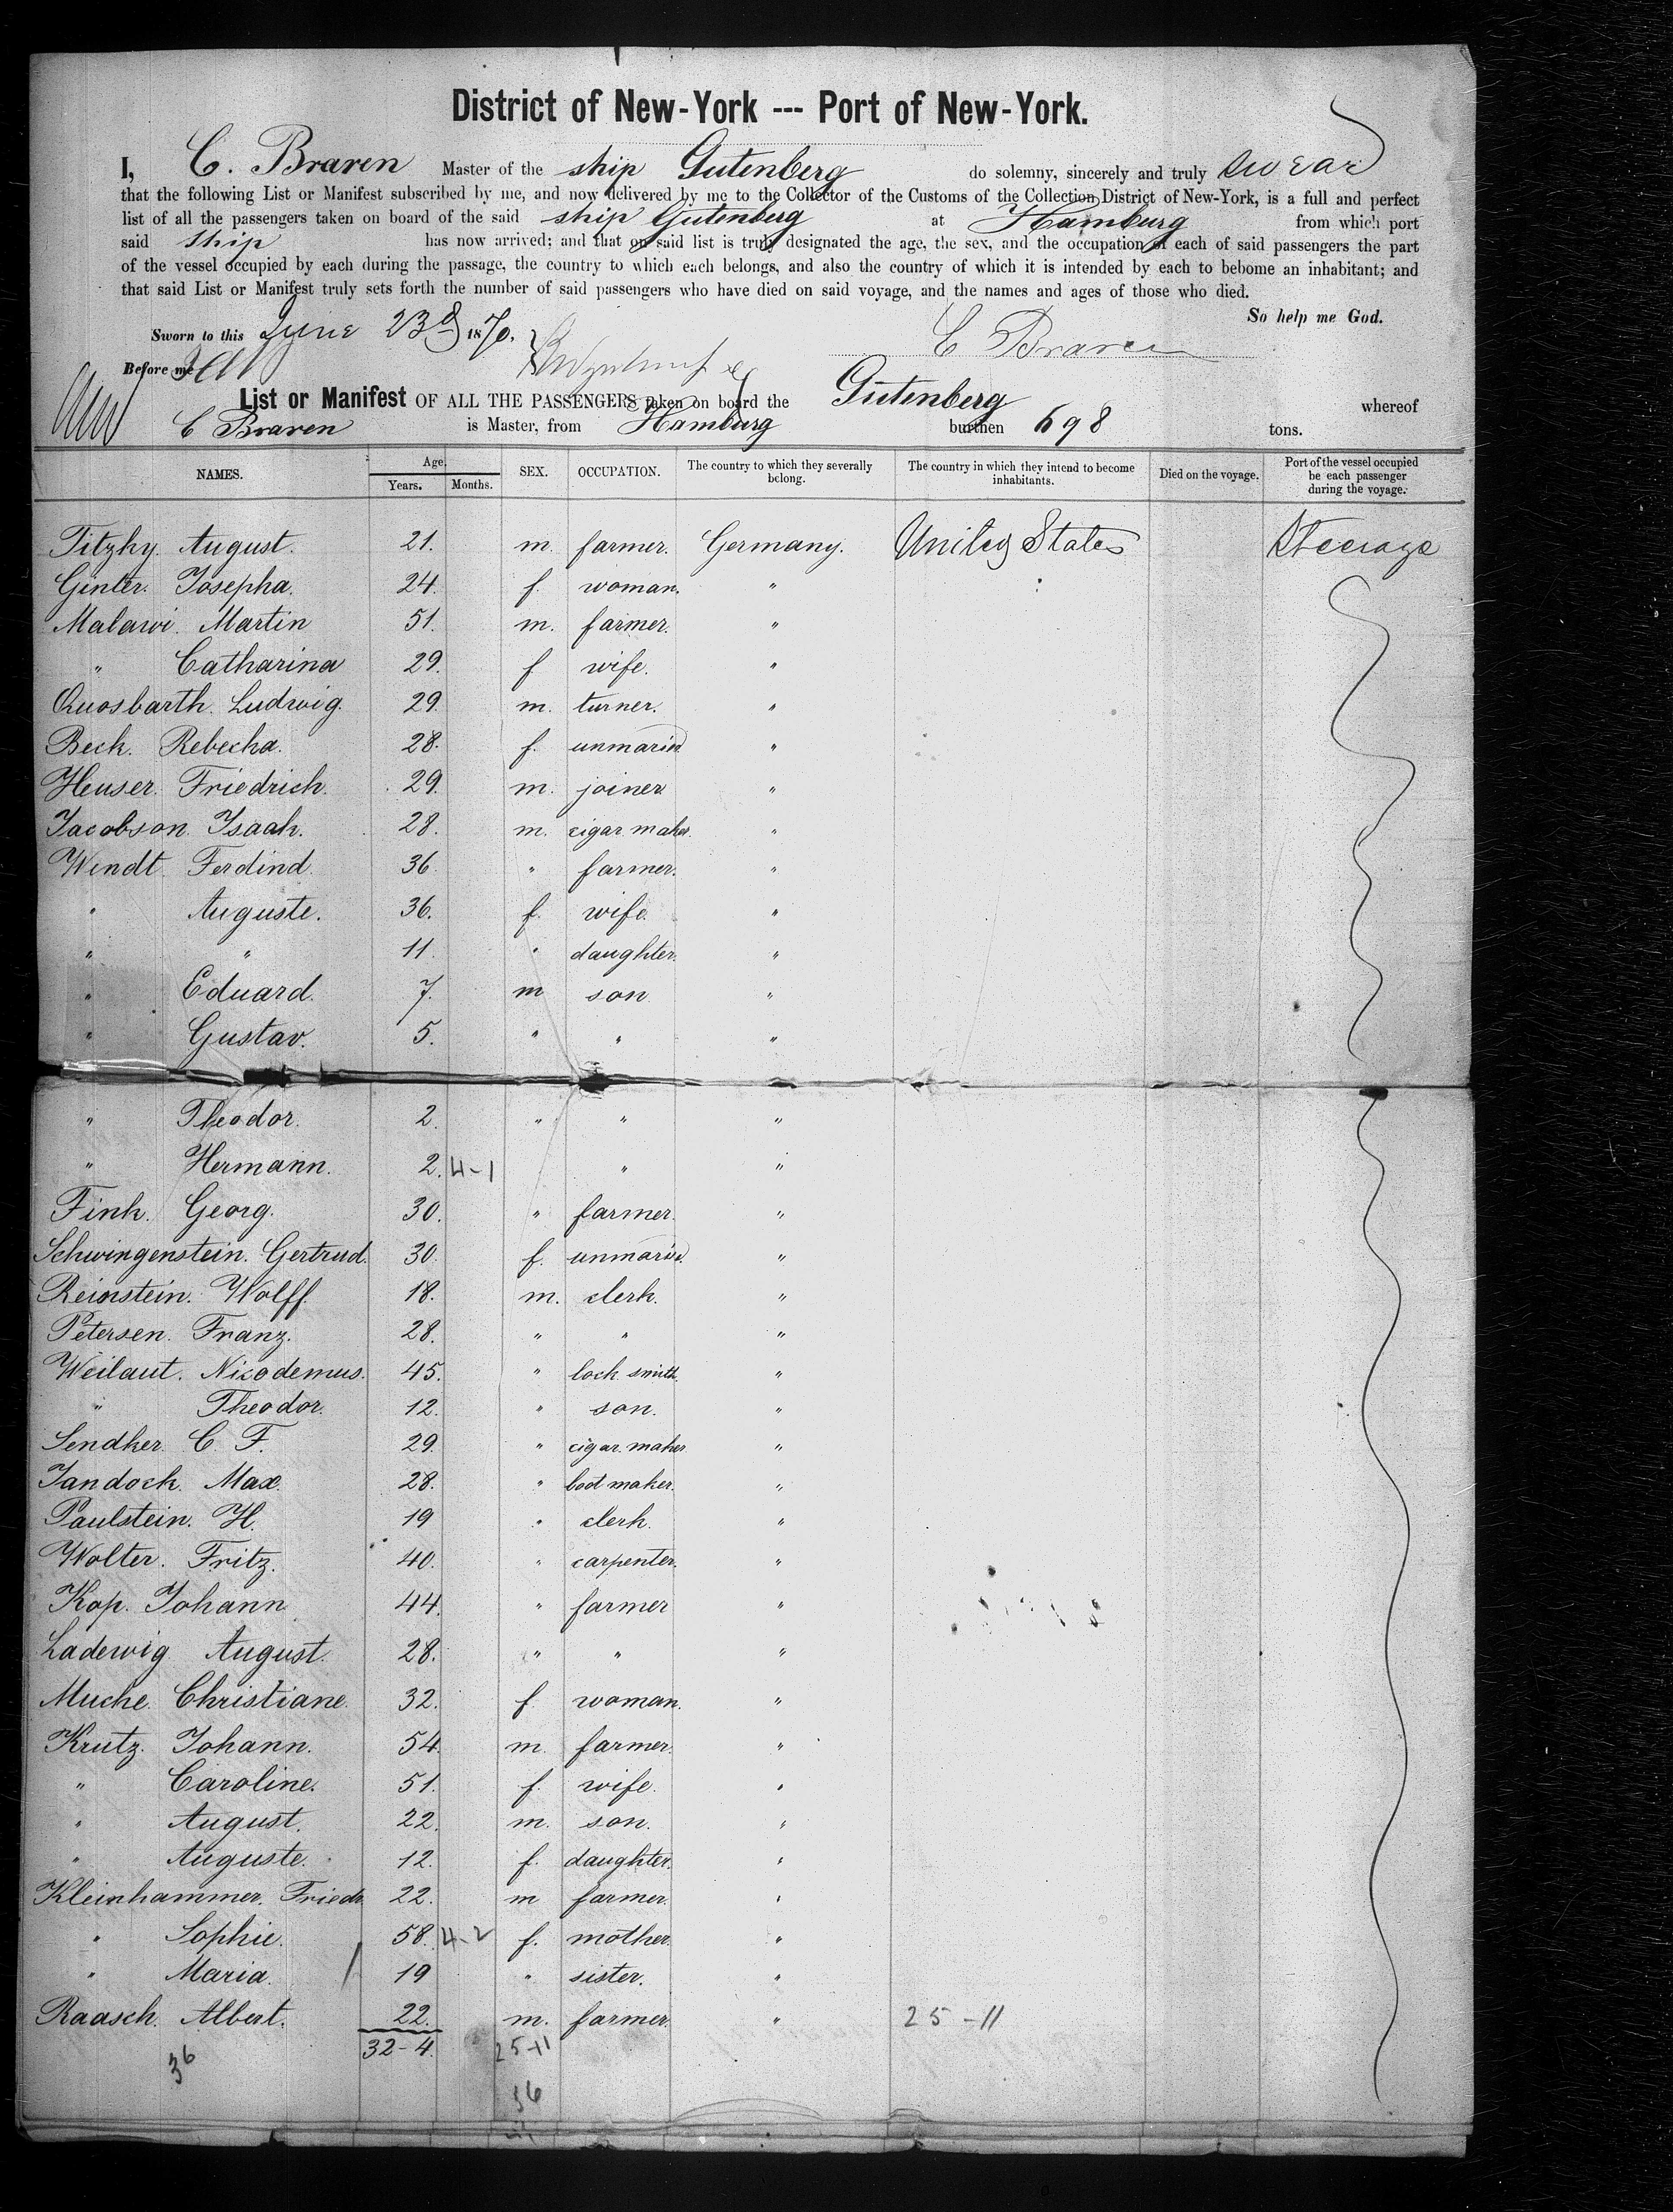 District of New-York --- Port of New-York.
I, C. Braren Master of the ship Gutenberg do solemny, sincerely and truly swear
that the following List or Manifest subscribed by me, and now delivered by me to the Collector of the Customs of the Collection District of New-York, is a full and perfect
list of all the passengers taken on board of the said ship Gutenberg at Hamburg from which port
said ship has now arrived; and that on said list is truly designated the age, the sex, and the occupation of each of said passengers the part
of the vessel occupied by each during the passage, the country to which each belongs, and also the country of which it is intended by each to bebome an inhabitant; and
that said List or Manifest truly sets forth the number of said passengers who have died on said voyage, and the names and ages of those who died.
So help me God.
Sworn to this June 23d 1870.
C Braren
Before me
List or Manifest OF ALL THE PASSENGERS taken on board the Gutenberg whereof
C Braren is Master, from Hamburg burthen 698 tons.
NAMES. Age. Years. Months. SEX. OCCUPATION. The country to which they severally belong. The country in which they intend to become inhabitants. Died on the voyage. Port of the vessel occupied be each passenger during the voyage.
Titzky. August. 21. m. farmer. Germany. United States Steerage
Ginter. Josepha. 24. f. woman. "
Malawi. Martin 51. m. farmer. "
" Catharina 29. f wife. "
Quosbarth. Ludwig. 29. m. turner. "
Beck. Rebecka. 28. f. unmaried "
Heuser. Friedrich. 29. m. joiner "
Jacobson. Isaak. 28. m. cigar maker. "
Wendt. Ferdind. 36. " farmer. "
" Auguste. 36. f. wife. "
" " 11. " daughter. "
" Eduard. 7. m son. "
" Gustav. 5. " " "
" Theodor. 2. " " "
" Hermann. 2. 4-1 " "
Fink. Georg. 30. " farmer. "
Schwingenstein. Gertrud. 30. f. unmaried. "
Reinstein. Wolff. 18. m. clerk. "
Petersen. Franz. 28. " " "
Weilaut. Nicodemus. 45. " lock smith. "
" Theodor. 12. " son. "
Sendker. C. F. 29. " cigar maker "
Jandock. Max. 28. " boot maker. "
Paulstein. H. 19 " clerk. "
Wolter. Fritz. 40. " carpenter. "
Kop. Johann 44. " farmer "
Ladewig August. 28. " " "
Muche. Christiane. 32. f. woman. "
Krutz. Johann. 54. m. farmer. "
" Caroline. 51. f. wife. "
" August. 22. m. son. "
" Auguste. 12. f. daughter. "
Kleinhammer. Friedr. 22. m farmer. "
" Sophie. 58. 4-2 f. mother. "
" Maria. 19 " sister. "
Raasch. Albert. 22. m. farmer. " 25-11
32-4. 25-11
36
36